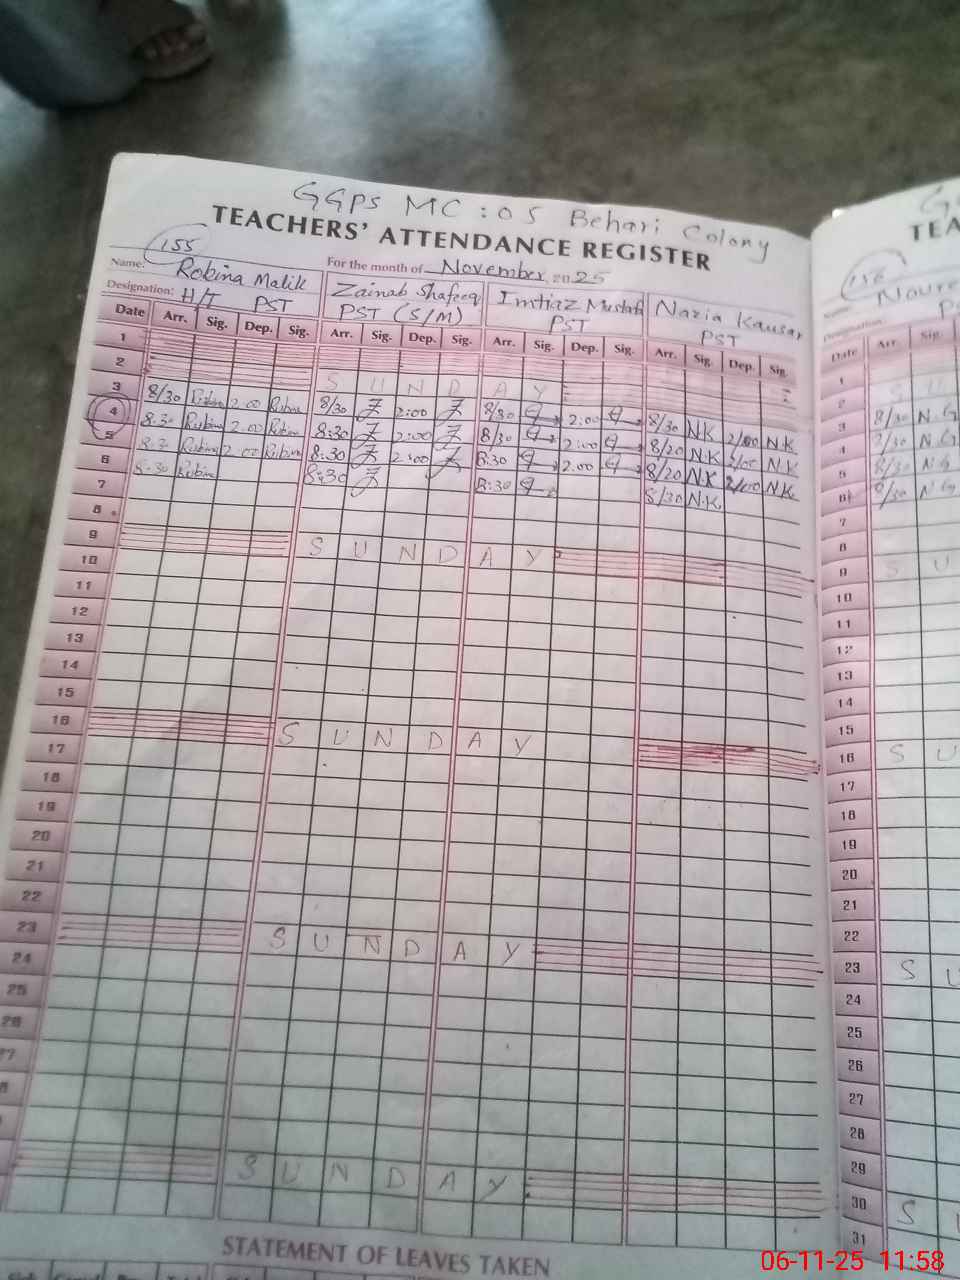 GGPS MC : 05 Behari Colony
TEACHERS' ATTENDANCE REGISTER
155
For the month of November, 2025
Name: Robina Malik Zainab Shafeeq Imtiaz Mustafa Nazia Kausar
Designation: H/T PST PST (S/M) PST PST
Date Arr. Sig. Dep. Sig. Arr. Sig. Dep. Sig. Arr. Sig. Dep. Sig. Arr. Sig. Dep. Sig.
1
2 S U N D A Y
3 8/30 Robina 2.00 Robina 8/30 2:00 8/30 2:00 8/30 N.K 2/00 N.K
4 8.30 Robina 2.00 Robina 8:30 2:00 8/30 2:00 8/20 N.K 2/00 N.K
5 8.30 Robina 2.00 Robina 8:30 2:00 8:30 2.00 8/20 N.K 2/00 N.K
6 8.30 Robina 8:30 8:30 8/30 N.K
7
8
9 S U N D A Y
10
11
12
13
14
15
16 S U N D A Y
17
18
19
20
21
22
23 S U N D A Y
24
25
26
27
S U N D A Y
STATEMENT OF LEAVES TAKEN
156
Date Arr. Sig.
1
2 S U
3 8/30 N.G
4 N.G
5 8/30 N.G
6 8/30 N.G
7
8
9 S U
10
11
12
13
14
15
16 S U
17
18
19
20
21
22
23 S U
24
25
26
27
28
29
30 S
31
06-11-25 11:58